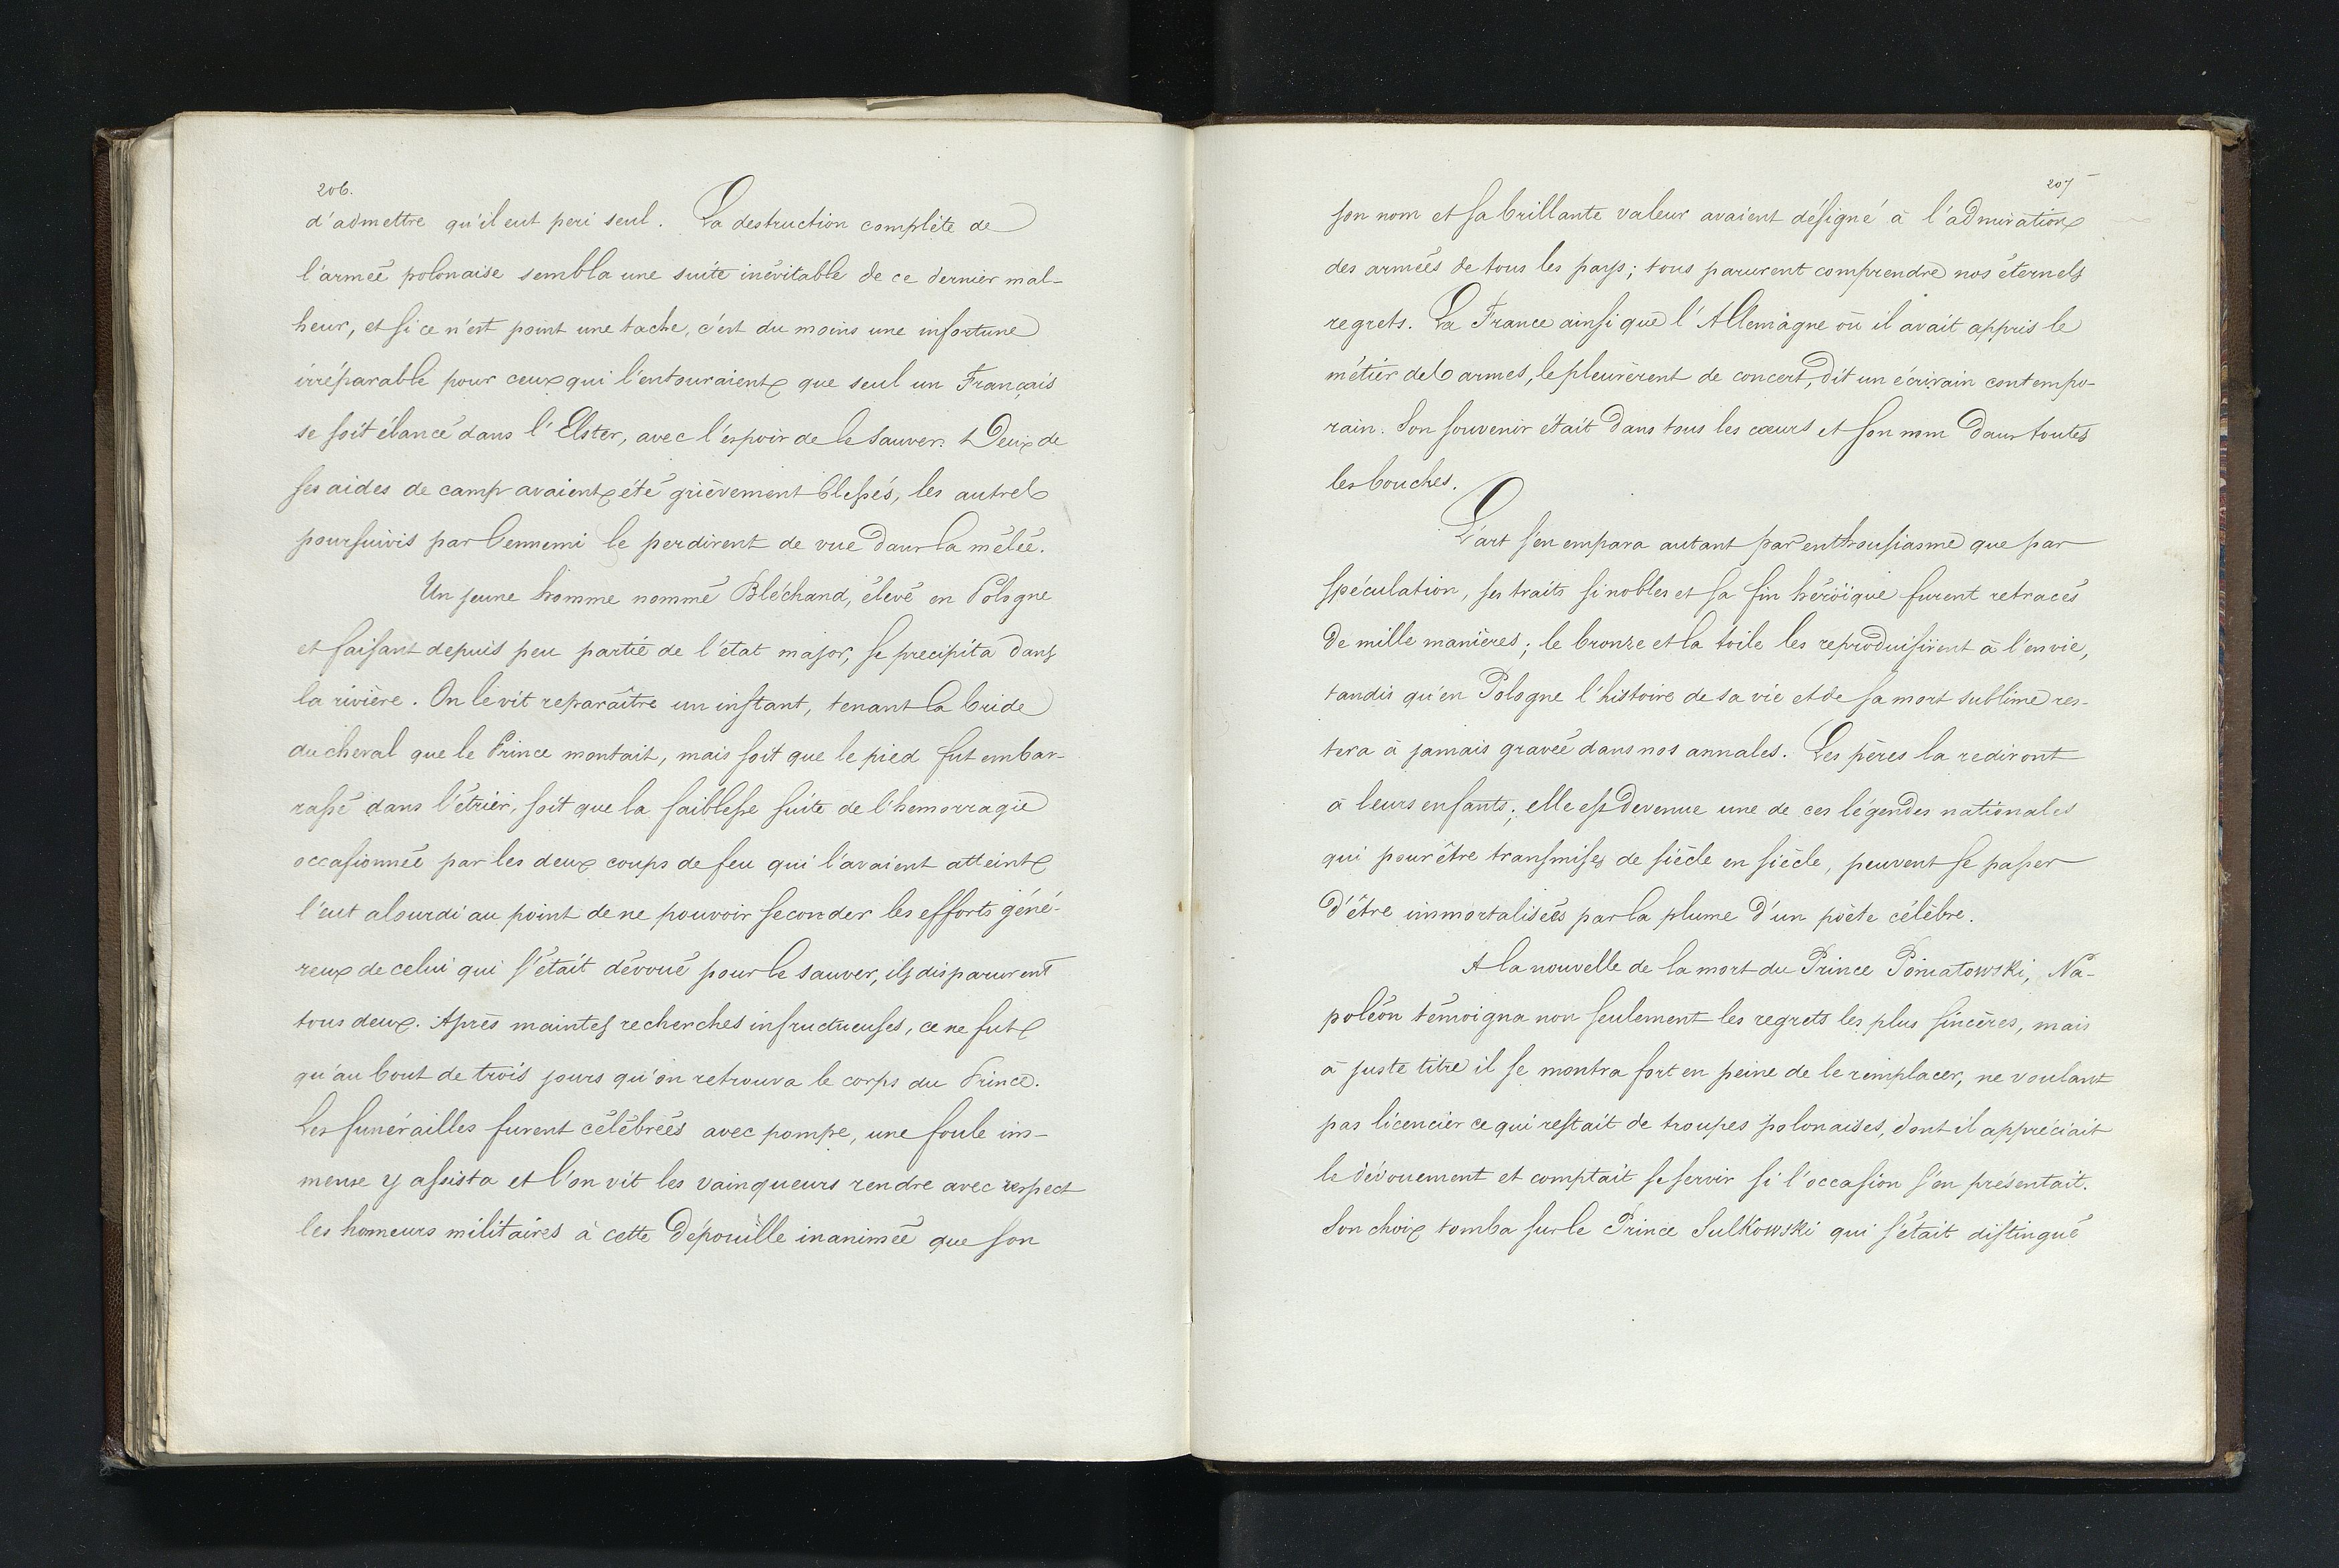 206.
d'admettre qu'il eut peri seul. La destruction complète de
l'armée polonaise sembla une suite inévitable de ce dernier mal-
heur, et si ce n'est point une tache, c'est du moins une infortune
irréparable pour ceux qui l'entouraient que seul un Français
se soit élancé dans l'Elster, avec l'espoir de le sauver. Deux de
ses aides de camp avaient été grièvement blessés, les autres
poursuivis par l'ennemi le perdirent de vue dans la mêlée.
Un jeune homme nommé Bléchand, élevé en Pologne
et faisant depuis peu partie de l'état major, se precipita dans
la rivière. On le vit reparaître un instant, tenant la bride
du cheval que le Prince montait, mais soit que le pied fut embar-
rassé dans l'étrier, soit que la faiblesse suite de l'hemorragie
occasionnée par les deux coups de feu qui l'avaient atteint
l'eut alourdi au point de ne pouvoir seconder les efforts géné-
reux de celui qui s'était dévoué pour le sauver, ils disparurent
tous deux. Après maintes recherches infructueuses, ce ne fut
qu'au bout de trois jours qu'on retrouva le corps du Prince.
Les funérailles furent célébrées avec pompe, une foule im-
mense y assista et l'on vit les vainqueurs rendre avec respect
les honneurs militaires à cette dépouille inanimée que son
207
son nom et sa brillante valeur avaient désigné à l'admiration
des armées de tous les pays; tous parurent comprendre nos éternels
regrets. La France ainsi que l'Allemagne où il avait appris le
métier des armes, le pleurèrent de concert, dit un écrivain contempo-
rain. Son souvenir était dans tous les cœurs et son nom dans toutes
les bouches.
L'art s'en empara autant par enthousiasme que par
spéculation, ses traits si nobles et sa fin héroïque furent retracés
de mille manières; le bronze et la toile les reproduisirent à l'envie,
tandis qu'en Pologne l'histoire de sa vie et de sa mort sublime res-
tera à jamais gravée dans nos annales. Les pères la rediront
à leurs enfants; elle est devenue une de ces légendes nationales
qui pour être transmises de siècle en siècle, peuvent se passer
d'être immortalisées par la plume d'un poète célèbre.
A la nouvelle de la mort du Prince Poniatowski, Na-
poléon témoigna non seulement les regrets les plus sincères, mais
à juste titre il se montra fort en peine de le remplacer, ne voulant
pas licencier ce qui restait de troupes polonaises, dont il appréciait
le dévouement et comptait se servir si l'occasion s'en présentait.
Son choix tomba sur le Prince Sulkowski qui s'était distingué